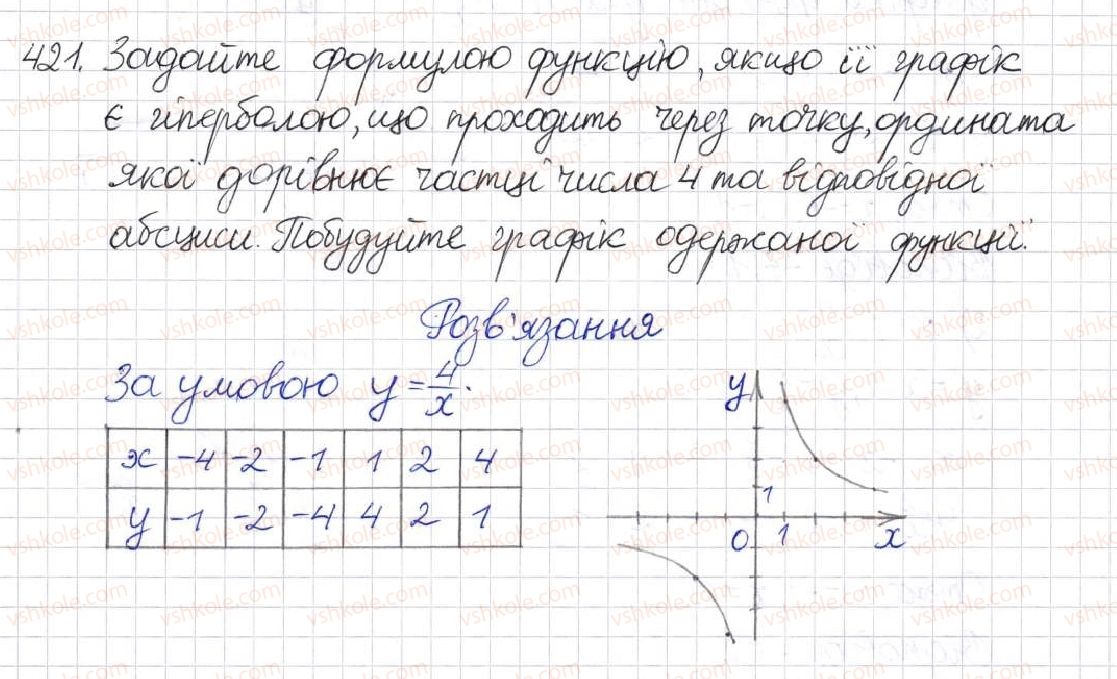 421. Задайте формулою функцію, якщо її графік
є гіперболою, що проходить через точку, ордината
якої дорівнює частці числа 4 та відповідної
абсциси. Побудуйте графік одержаної функції.
Розв'язання
За умовою y = 4/x.
x -4 -2 -1 1 2 4
y -1 -2 -4 4 2 1
y
1
0 1 x
vshkole.com